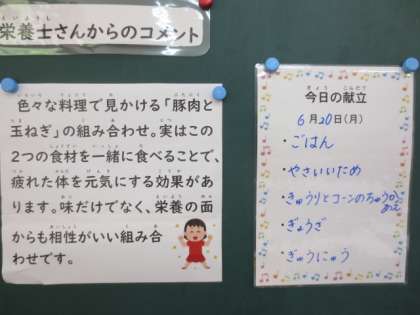 栄養士さんからのコメント
色々な料理で見かける「豚肉と
玉ねぎ」の組み合わせ。実はこの
2つの食材を一緒に食べることで、
疲れた体を元気にする効果があ
ります。味だけでなく、栄養の面
からも相性がいい組み合
わせです。
今日の献立
6月20日(月)
・ごはん
・やさいいため
・きゅうりとコーンのちゅうか
・ぎょうざ
・ぎゅうにゅう